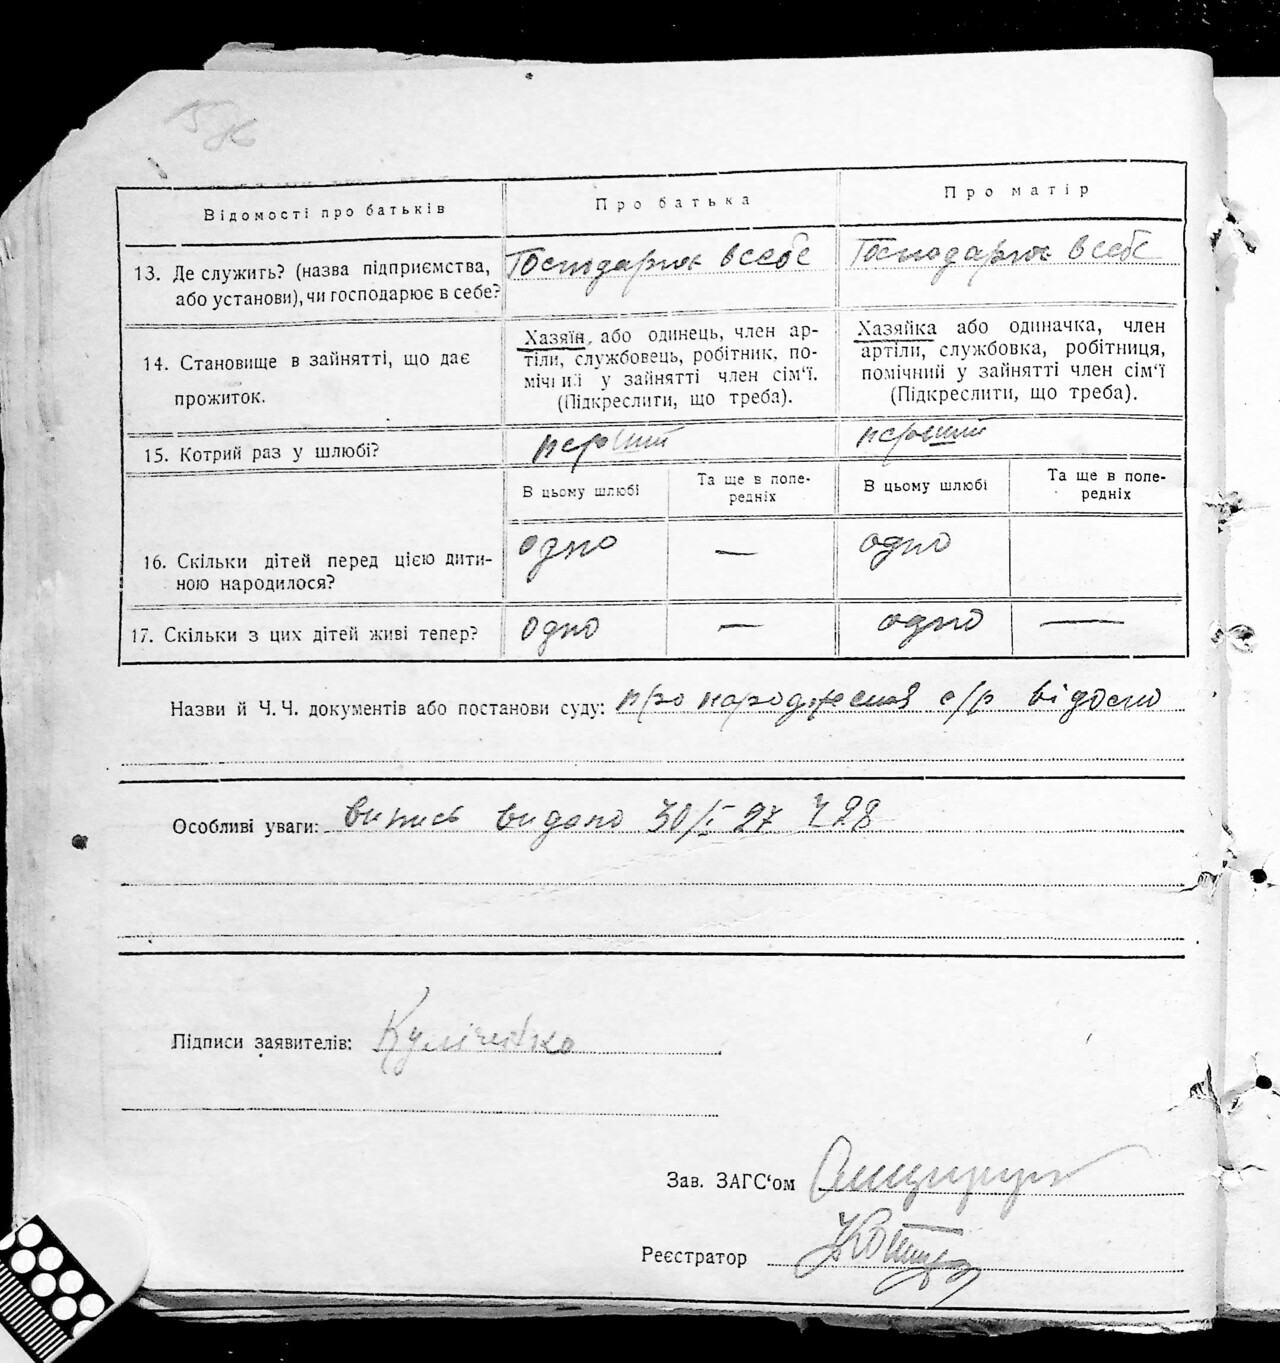 Відомості про батьків
Про батька
Про матір
13. Де служить? (назва підприємства,
або установи), чи господарює в себе?
Господарює в себе
Господарює в себе
14. Становище в зайнятті, що дає
прожиток.
Хазяїн, або одинець, член ар-
тіли, службовець, робітник, по-
мічний у зайнятті член сім'ї.
(Підкреслити, що треба).
Хазяйка або одиначка, член
артіли, службовка, робітниця,
помічний у зайнятті член сім'ї
(Підкреслити, що треба).
15. Котрий раз у шлюбі?
перший
перший
В цьому шлюбі
Та ще в попе-
редніх
В цьому шлюбі
Та ще в попе-
редніх
16. Скільки дітей перед цією дити-
ною народилося?
одно
—
одно
17. Скільки з цих дітей живі тепер?
одно
—
одно
—
Назви й Ч. Ч. документів або постанови суду: про народження с/р відомо
Особливі уваги: випись видано 30/I 27 Ч 28
Підписи заявителів:
Зав. ЗАГС'ом
Реєстратор